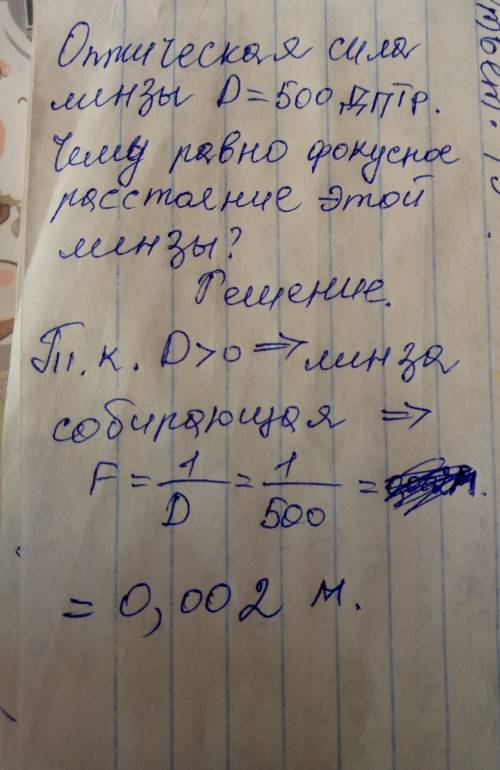 Оптическая сила
линзы D = 500 дптр.
Чему равно фокусное
расстояние этой
линзы?
Решение.
Т. к. D>0 ⇒ линза
собирающая ⇒
F = 1/D = 1/500 = м.
= 0,002 м.